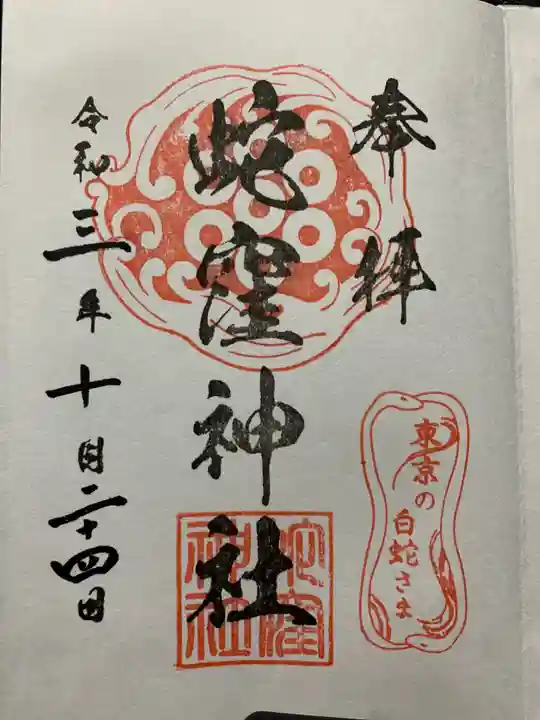 奉拝
東京の
白蛇さま
蛇窪神社
蛇窪
神社
令和三年十月二十四日